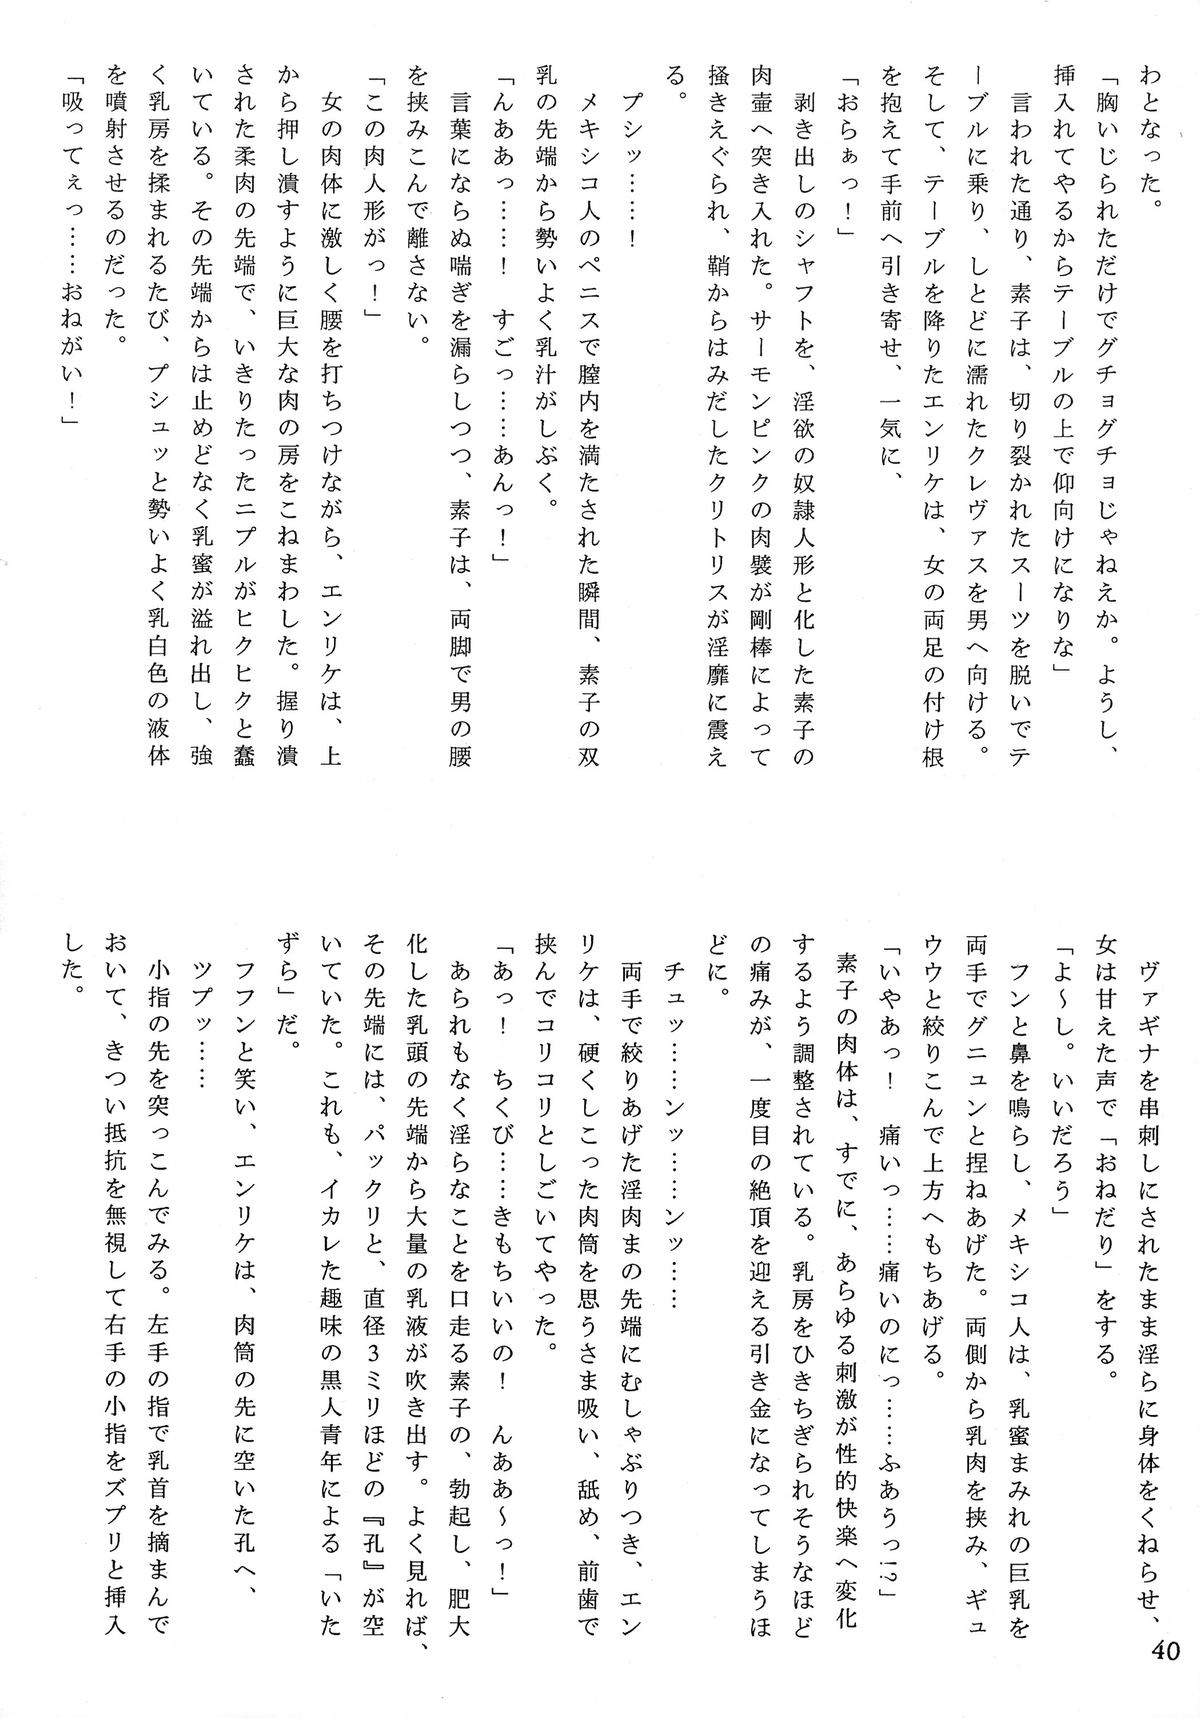 わとなった。
「胸いじられただけでグチョグチョじゃねえか。ようし、
挿入れてやるからテーブルの上で仰向けになりな」
　言われた通り、素子は、切り裂かれたスーツを脱いでテ
ーブルに乗り、しとどに濡れたクレヴァスを男へ向ける。
そして、テーブルを降りたエンリケは、女の両足の付け根
を抱えて手前へ引き寄せ、一気に、
「おらぁっ！」
　剥き出しのシャフトを、淫欲の奴隷人形と化した素子の
肉壷へ突き入れた。サーモンピンクの肉襞が剛棒によって
掻きえぐられ、鞘からはみだしたクリトリスが淫靡に震え
る。
　プシッ……！
　メキシコ人のペニスで膣内を満たされた瞬間、素子の双
乳の先端から勢いよく乳汁がしぶく。
「んああっ……！　すごっ……あんっ！」
　言葉にならぬ喘ぎを漏らしつつ、素子は、両脚で男の腰
を挟みこんで離さない。
「この肉人形がっ！」
　女の肉体に激しく腰を打ちつけながら、エンリケは、上
から押し潰すように巨大な肉の房をこねまわした。握り潰
された柔肉の先端で、いきりたったニプルがヒクヒクと蠢
いている。その先端からは止めどなく乳蜜が溢れ出し、強
く乳房を揉まれるたび、プシュッと勢いよく乳白色の液体
を噴射させるのだった。
「吸ってぇっ……おねがい！」
　ヴァギナを串刺しにされたまま淫らに身体をくねらせ、
女は甘えた声で「おねだり」をする。
「よ～し。いいだろう」
　フンと鼻を鳴らし、メキシコ人は、乳蜜まみれの巨乳を
両手でグニュンと捏ねあげた。両側から乳肉を挟み、ギュ
ウウと絞りこんで上方へもちあげる。
「いやあっ！　痛いっ……痛いのにっ……ふあうっ!?」
　素子の肉体は、すでに、あらゆる刺激が性的快楽へ変化
するよう調整されている。乳房をひきちぎられそうなほど
の痛みが、一度目の絶頂を迎える引き金になってしまうほ
どに。
　チュッ……ンッ……ンッ……
　両手で絞りあげた淫肉まの先端にむしゃぶりつき、エン
リケは、硬くしこった肉筒を思うさま吸い、舐め、前歯で
挟んでコリコリとしごいてやった。
「あっ！　ちくび……きもちいいの！　んああ～っ！」
　あられもなく淫らなことを口走る素子の、勃起し、肥大
化した乳頭の先端から大量の乳液が吹き出す。よく見れば、
その先端には、パックリと、直径３ミリほどの『孔』が空
いていた。これも、イカレた趣味の黒人青年による「いた
ずら」だ。
　フフンと笑い、エンリケは、肉筒の先に空いた孔へ、
　ツプッ……
　小指の先を突っこんでみる。左手の指で乳首を摘まんで
おいて、きつい抵抗を無視して右手の小指をズプリと挿入
した。
40